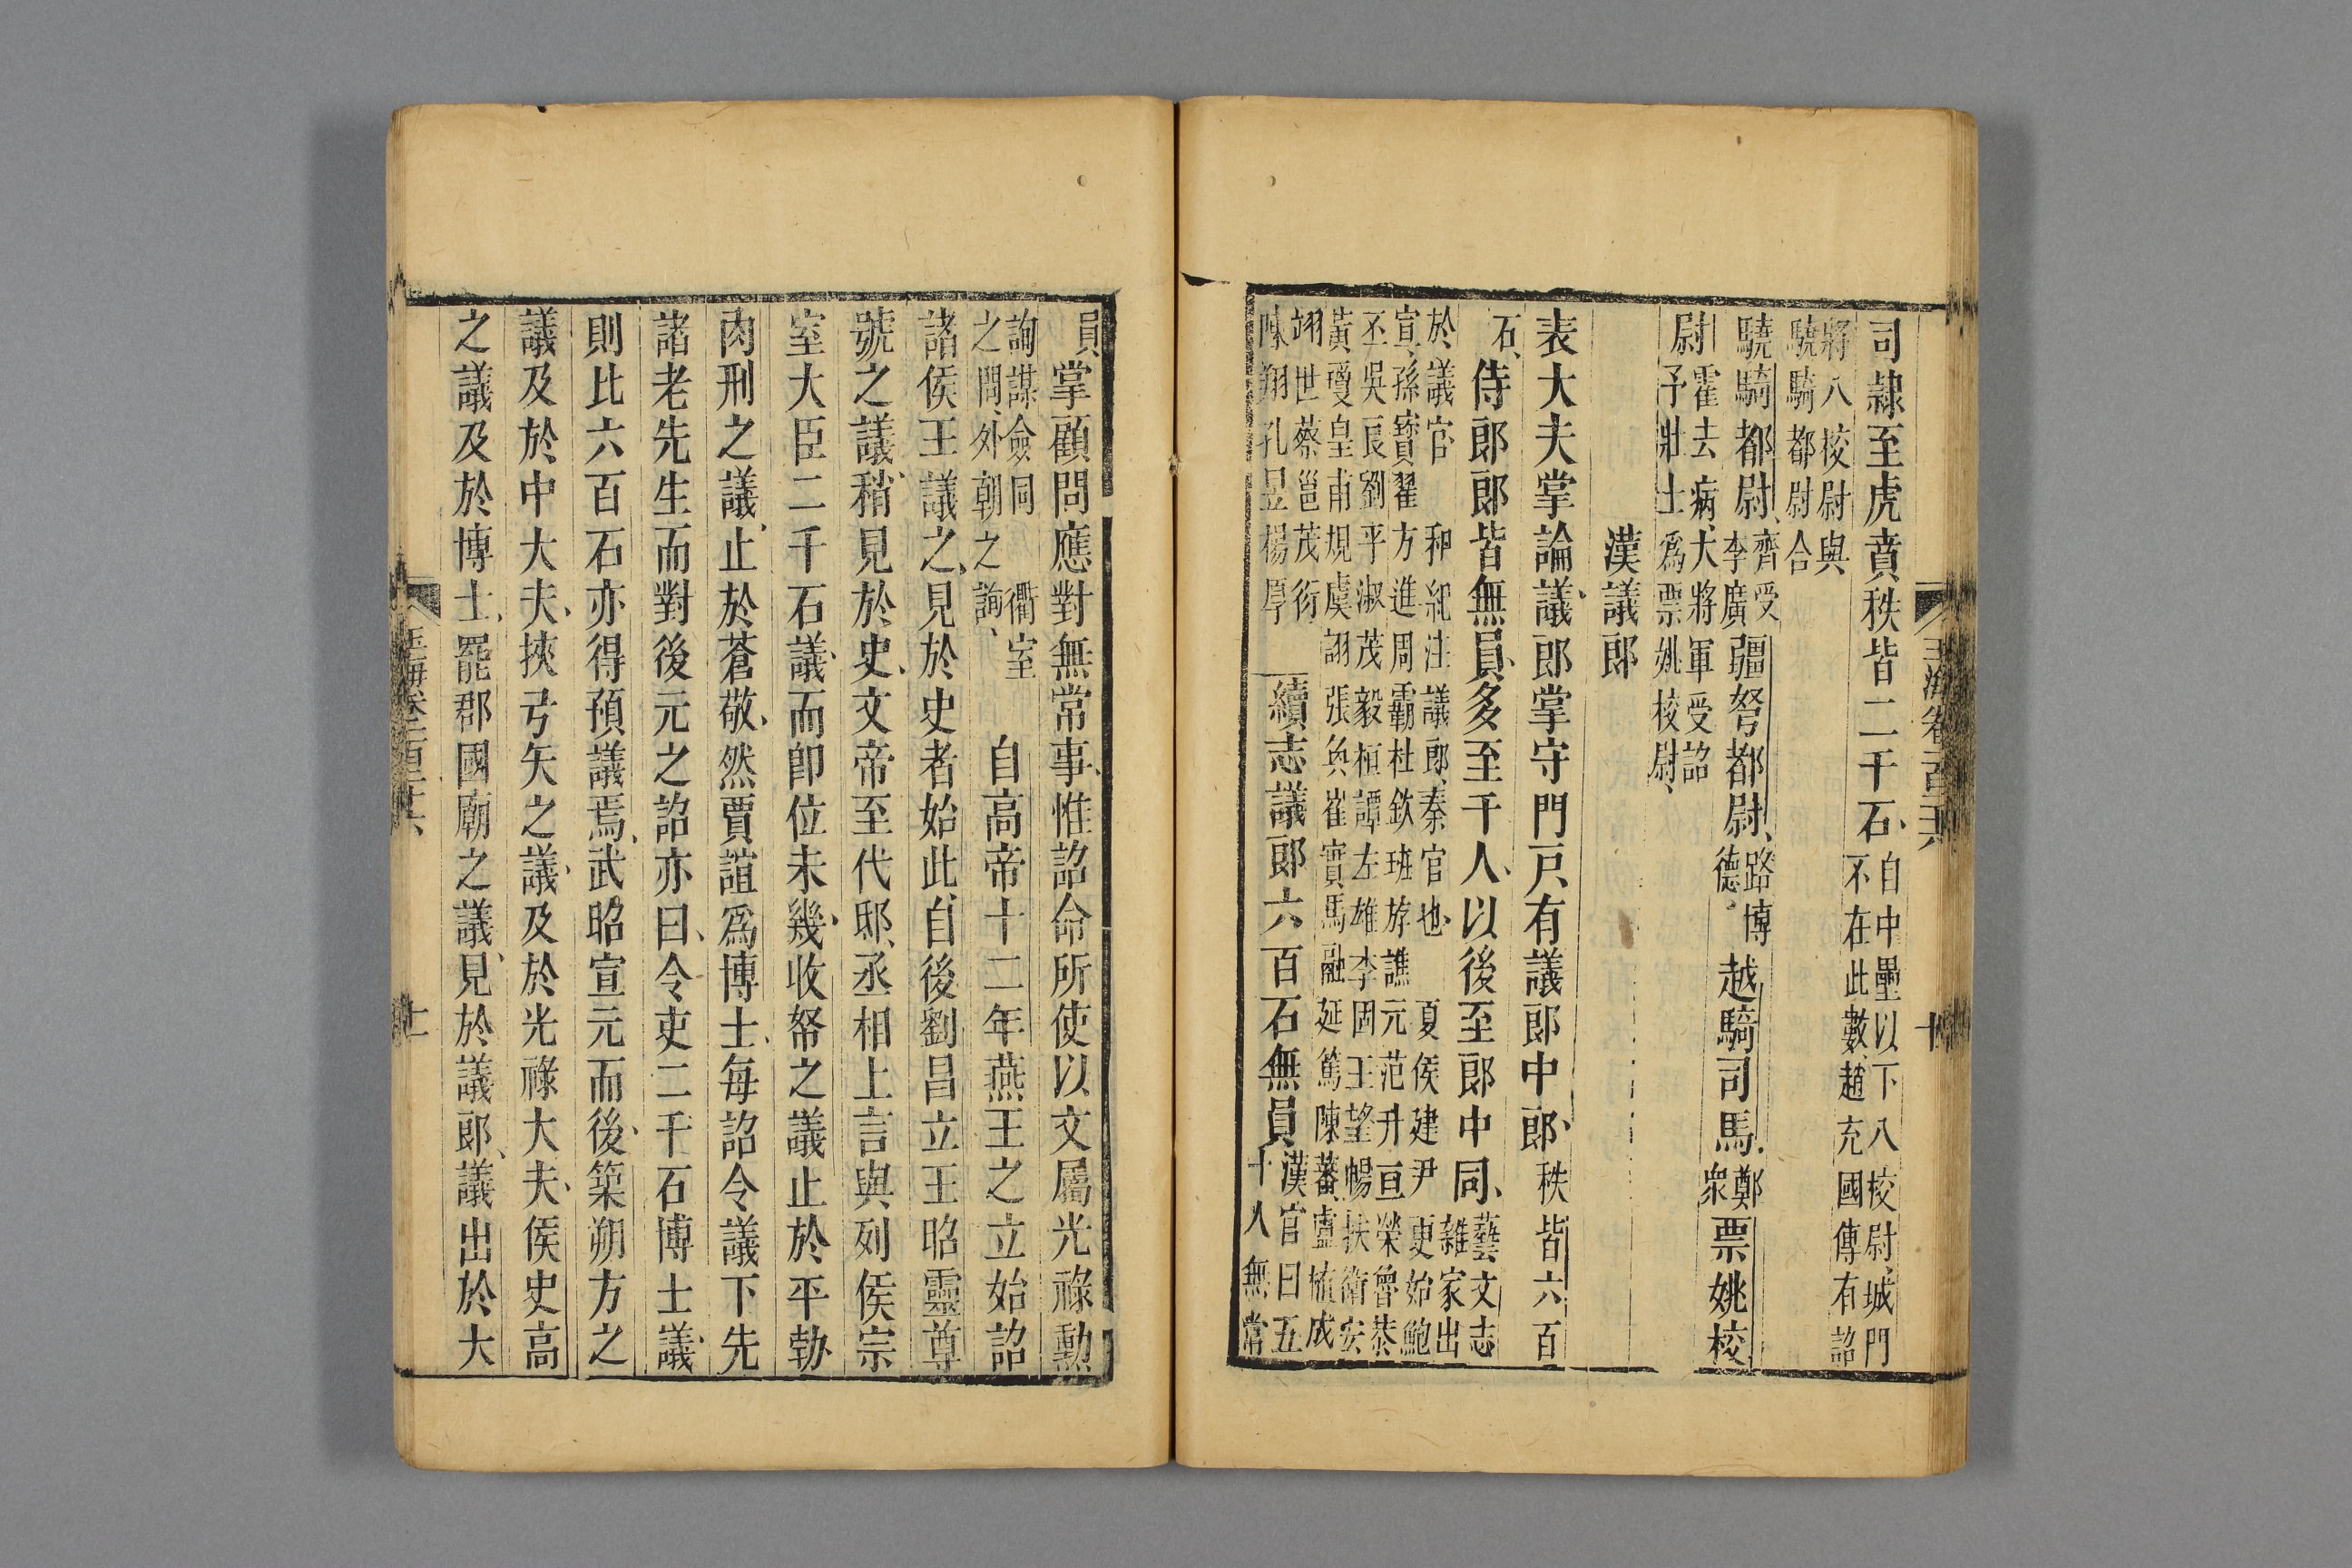 玉海卷一百三十六 十
司隸至虎賁秩皆二千石、自中壘以下八校尉、城門
不在此數、趙充國傳有詔
將八校尉與
驍騎都尉合
驍騎都尉、齊受
李廣
疆弩都尉、路博
德
越騎司馬、鄭
衆
票姚校
尉霍去病、大將軍受詔
予壯士為票姚校尉、
漢議郎
表大夫掌論議、郎掌守門戸、有議郎中郎、秩皆六百
石、侍郎郎皆無員、多至千人、以後至郎中同、藝文志
雜家出
於議官 和紀注議郎、秦官也 夏侯建尹更始鮑
宣、孫寶翟方進周霸杜欽班斿譙元范升亘榮魯恭
丕吳良劉平淑茂毅桓譚左雄李固王望暢扶衛安
黃瓊皇甫規虞詡張奐崔寔馬融延篤陳蕃盧植成
翊世蔡邕茂衍
陳翔孔昱楊厚
續志議郎六百石無員漢官曰五
十人無常
員、掌顧問應對無常事、惟詔命所使以文屬光祿勲
詢謀僉同 衢室
之問、外朝之詢、
自高帝十二年燕王之立始詔
諸侯王議之、見於史者始此、自後劉昌立王昭靈尊
號之議、稍見於史、文帝至代邸、丞相上言與列侯宗
室大臣二千石議、而卽位未幾、收帑之議止於平勃、
肉刑之議、止於蒼敬、然賈誼爲博士、每詔令議下、先
諸老先生而對後元之詔亦曰、令吏二千石博士議、
則比六百石亦得預議焉、武昭宣元而後、築朔方之
議及於中大夫、挾弓矢之議、及於光祿大夫、侯史高
之議及於博士、罷郡國廟之議、見於議郎、議出於大
玉海卷一百三十六 十一